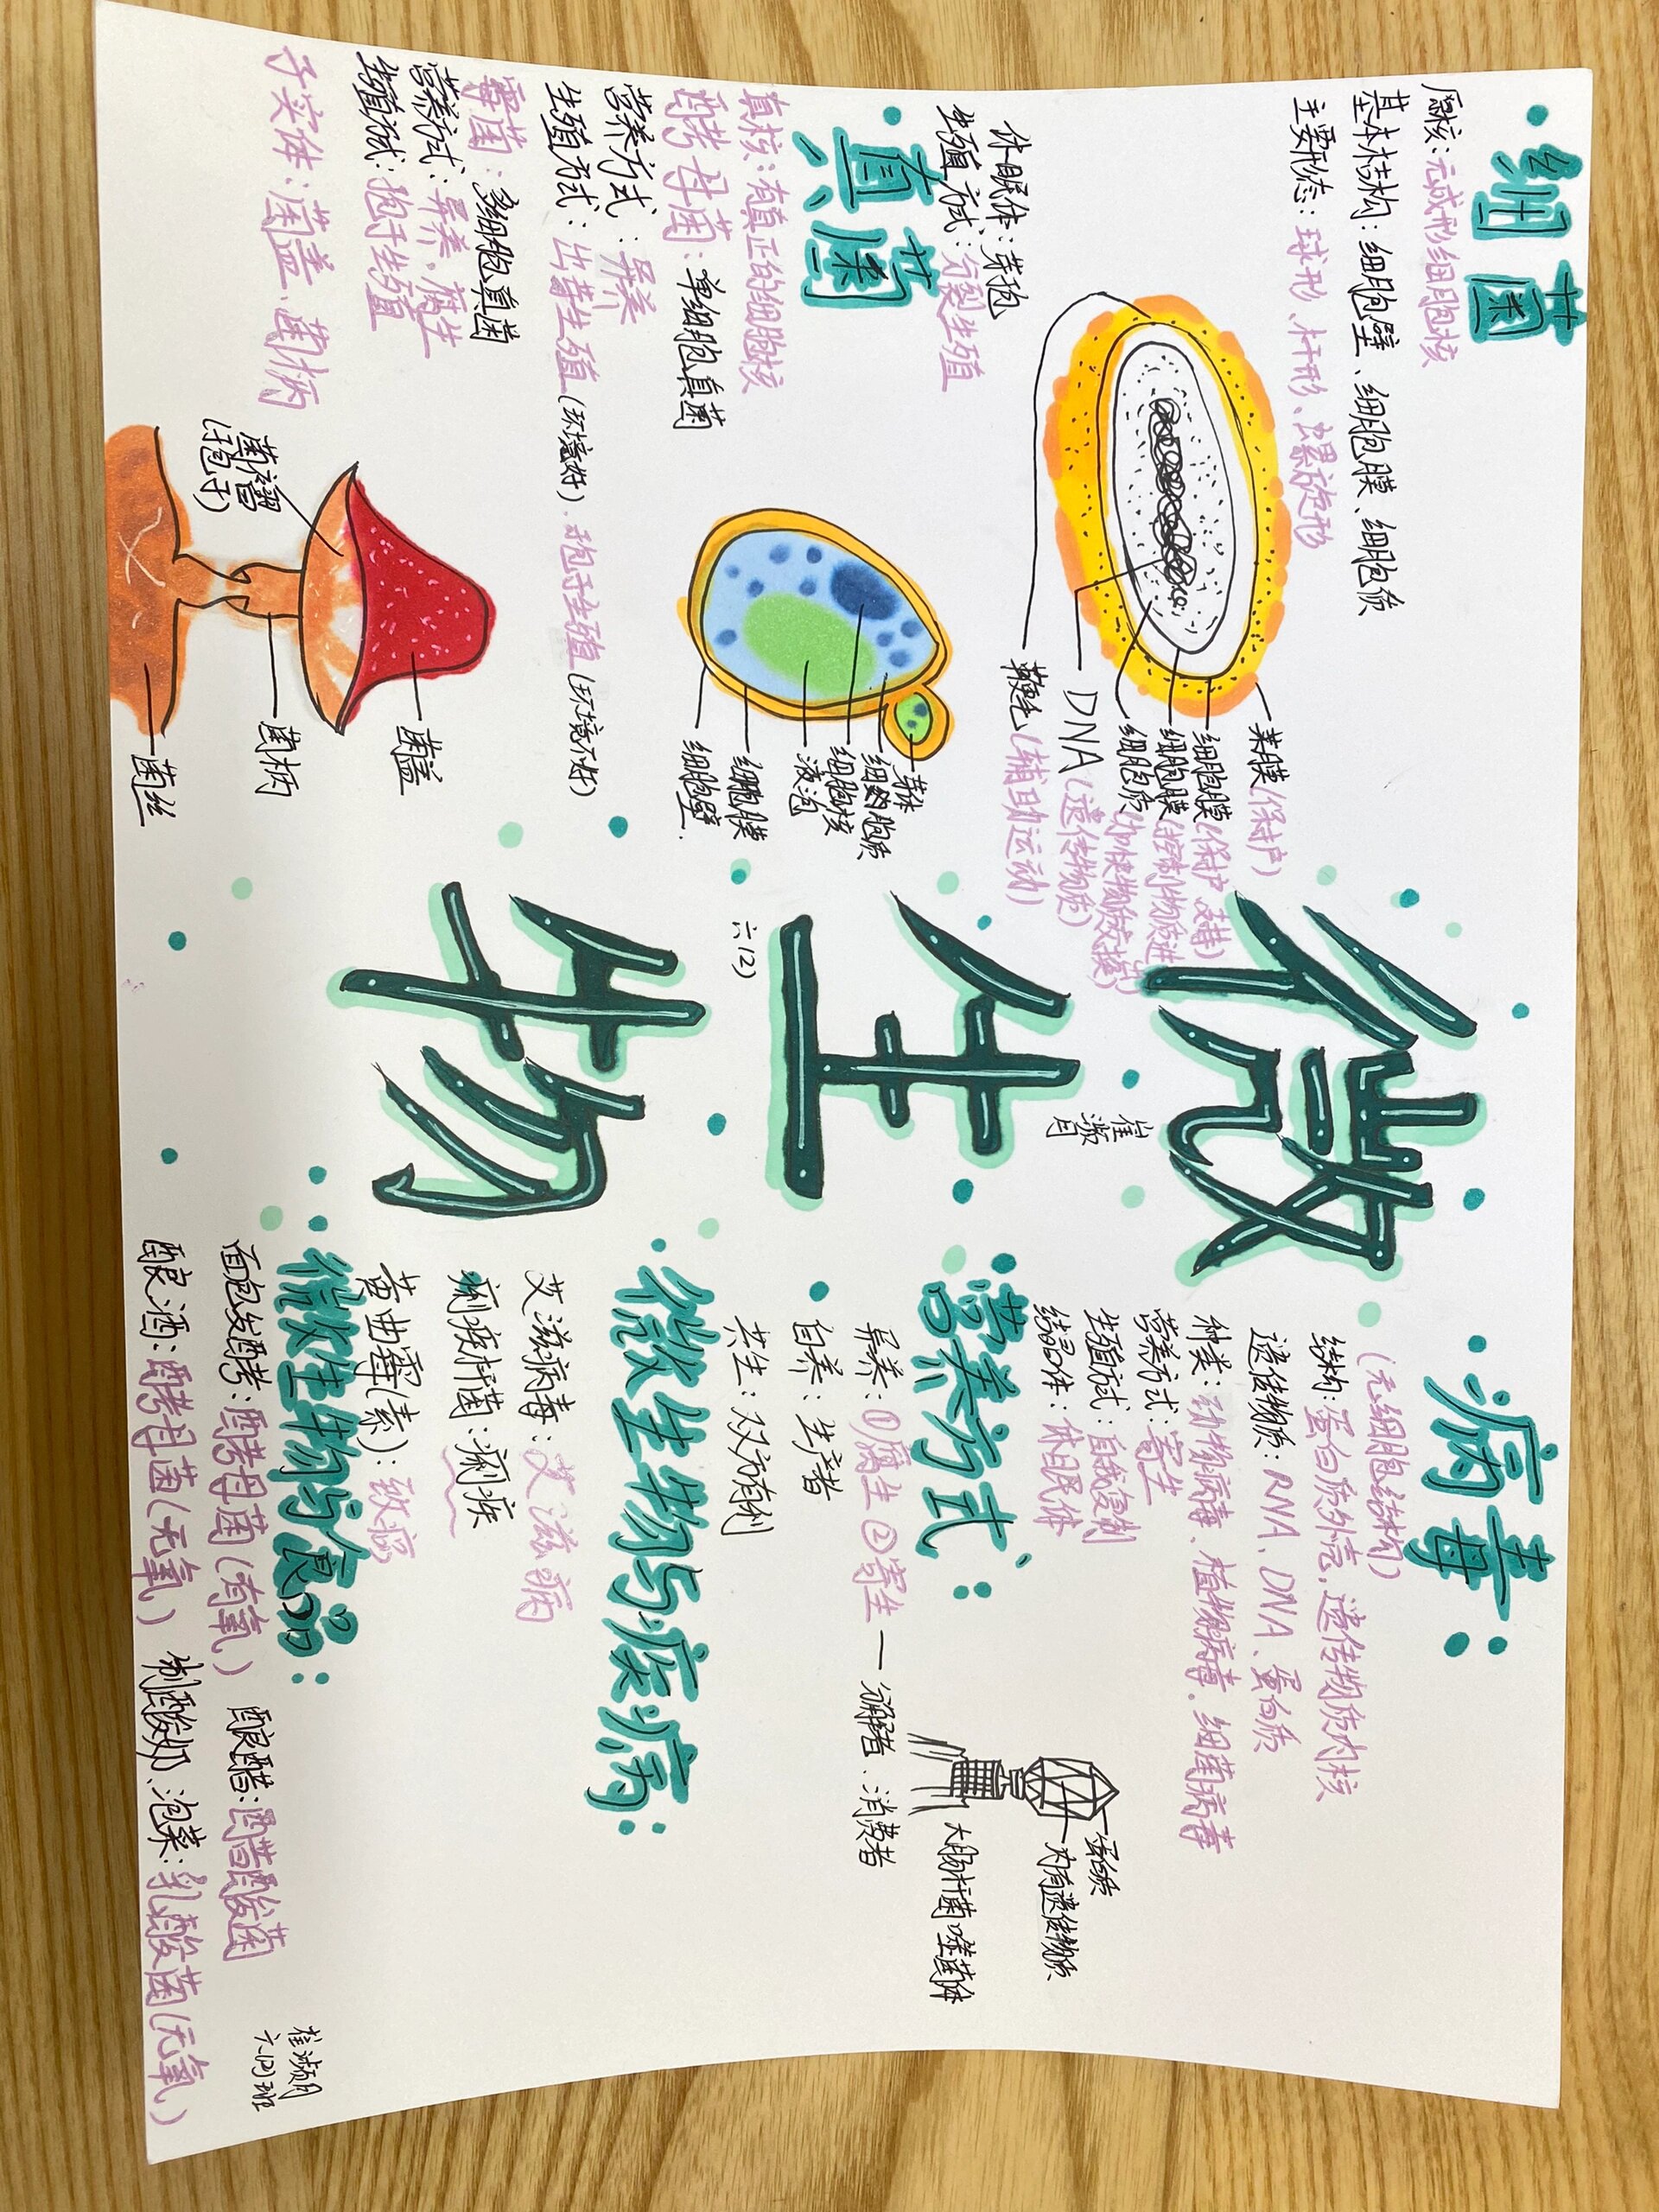 细菌
原核：无成形细胞核
基本结构：细胞壁、细胞膜、细胞质
主要形态：球形、杆形、螺旋形
荚膜(保护)
细胞膜(保护、支持)
细胞膜(控制物质进
细胞质(加快物质交换)
DNA(遗传物质)
鞭毛(辅助运动)
休眠体：芽孢
生殖方式：分裂生殖
真菌
真核：有真正的细胞核
酵母菌：单细胞真菌
营养方式：异养
生殖方式：出芽生殖(环境好)、孢子生殖(环境不好)
芽体
细胞质
细胞核
液泡
细胞膜
细胞壁
霉菌：多细胞真菌
营养方式：异养、腐生
生殖方式：孢子生殖
子实体：菌盖、菌柄
菌褶
(孢子)
菌盖
菌柄
菌丝
微生物
崔濒月
六(2)
病毒：
(无细胞结构)
结构：蛋白质外壳，遗传物质内核
遗传物质：RNA、DNA、蛋白质
种类：动物病毒、植物病毒、细菌病毒
营养方式：寄生
生殖方式：自我复制
结晶体：休眠体
蛋白质
内有遗传物质
大肠杆菌噬菌体
营养方式：
异养：①腐生 ②寄生—分解者、消费者
自养：生产者
共生：双方有利
微生物与疾病：
艾滋病毒：艾滋病
痢疾杆菌：痢疾
黄曲霉(素)：致癌
微生物与食品：
面包发酵：酵母菌(有氧) 酿醋：醋酸菌
酿酒：酵母菌(无氧) 制酸奶、泡菜：乳酸菌(无氧)
崔濒月
六(2)班